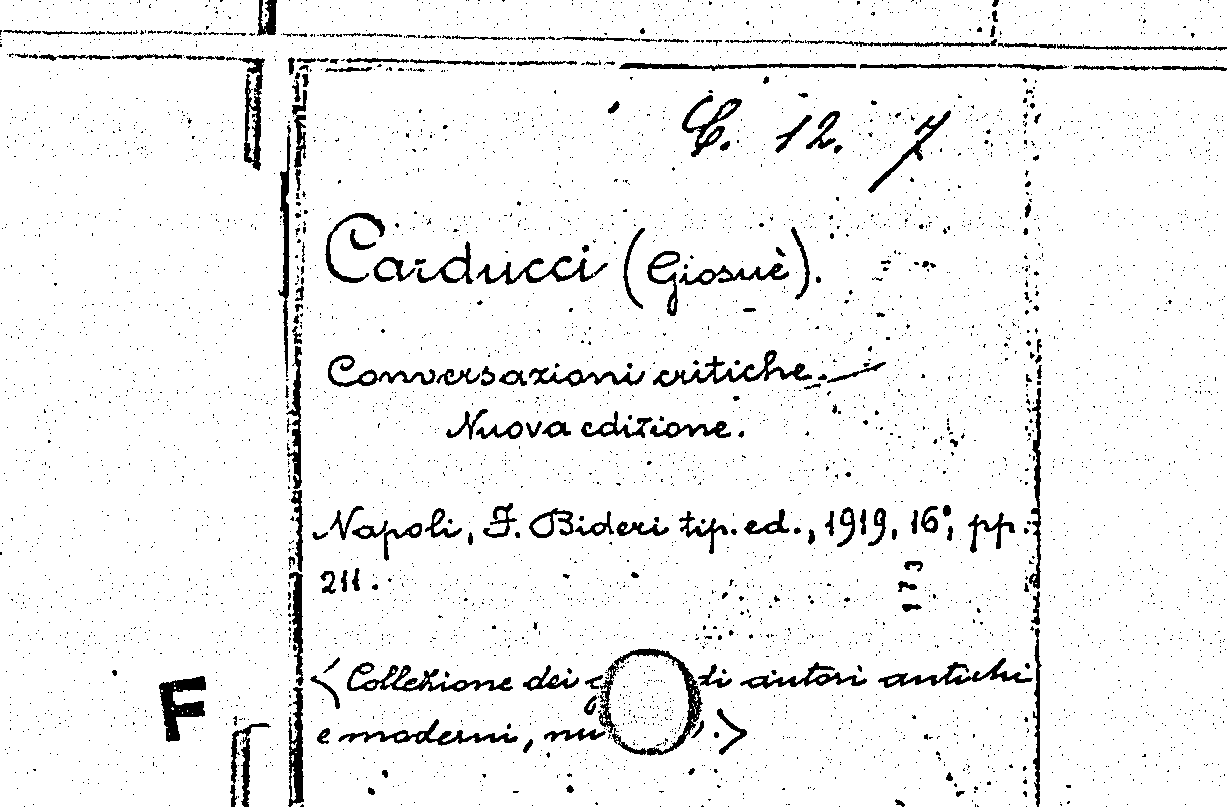 C. 12. 7
Carducci (Giosuè).
Conversazioni critiche.
Nuova edizione.
Napoli, F. Bideri tip. ed., 1919, 16°, pp.
211.
173
<Collezione dei di autori antichi
e moderni, .>
F